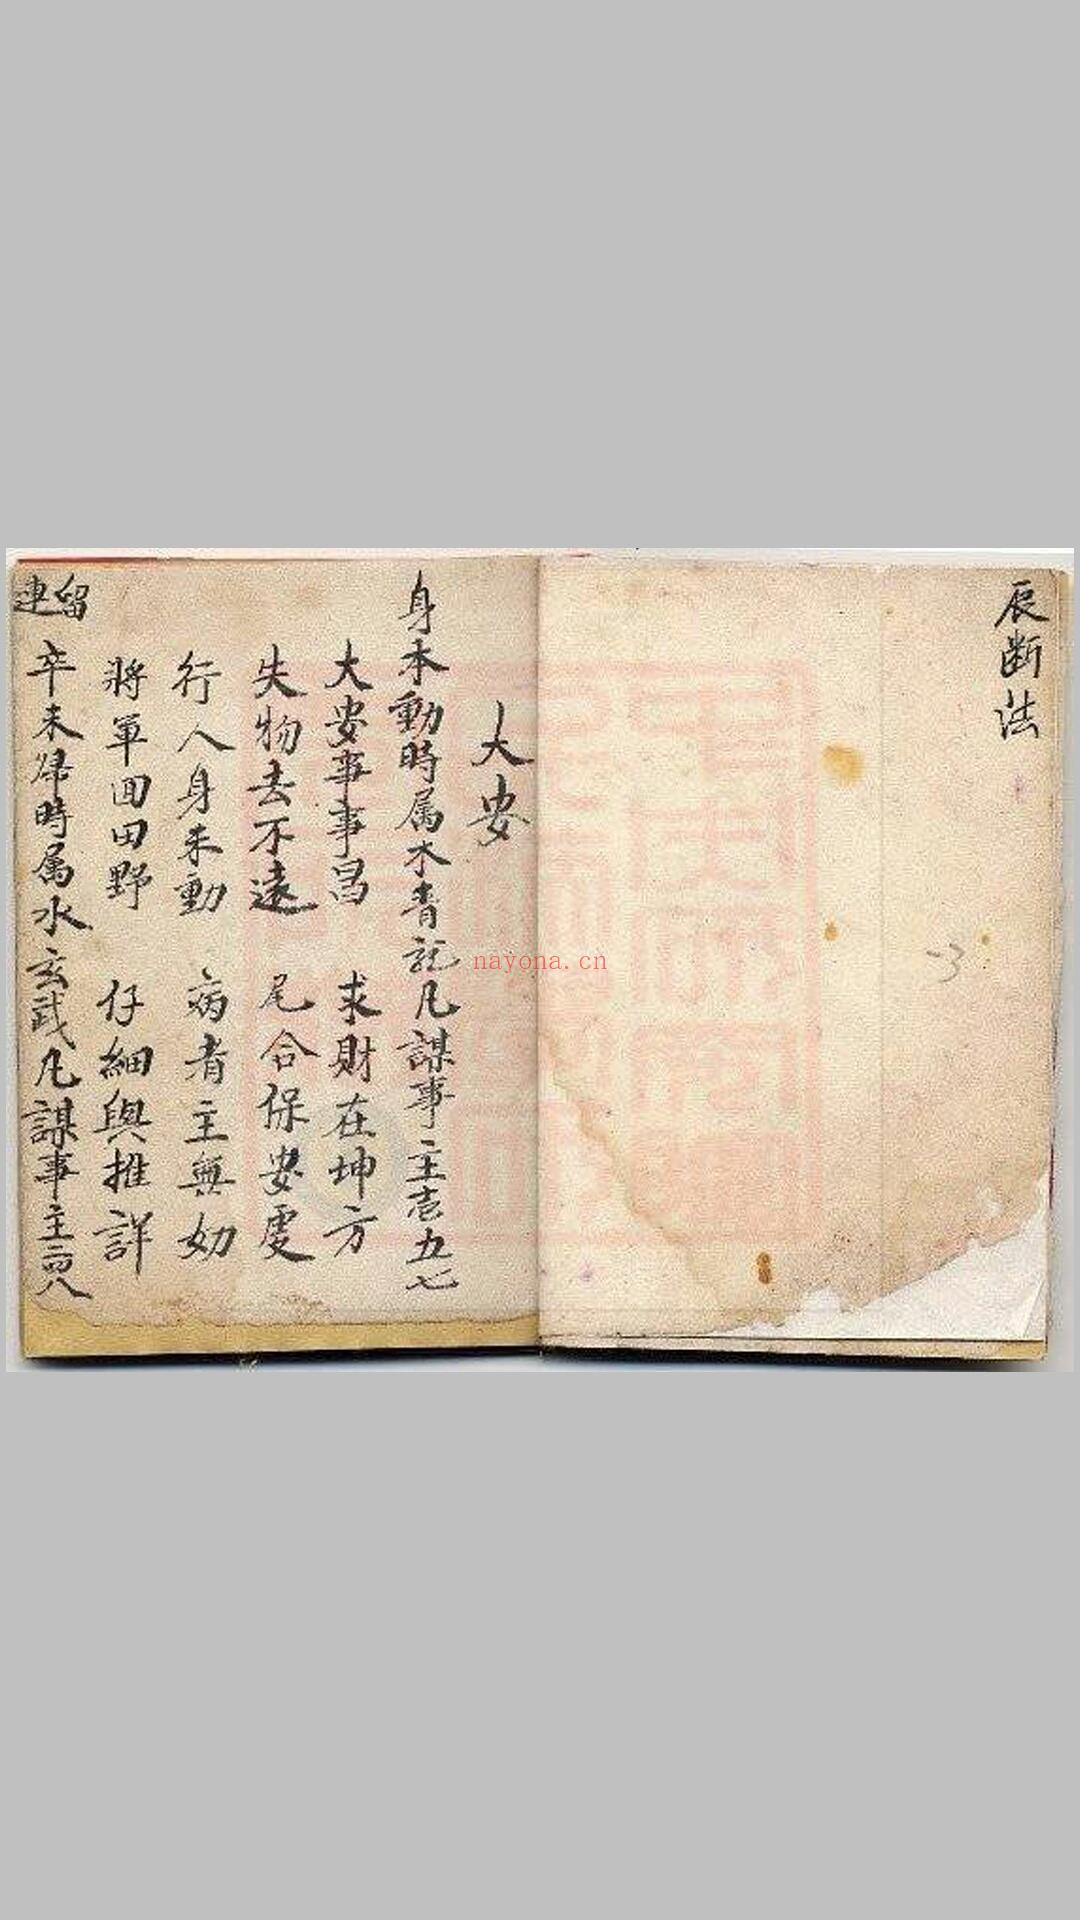 辰断法
大安
身未動時属木青龍凡謀事主壱五七
大安事事昌 求財在坤方
失物去不遠 宅舍保安
行人身未動 病者主無妨
將軍回田野 仔細與推詳
留連
卒未歸時属水玄武凡謀事主二八
nayona.cn
-3